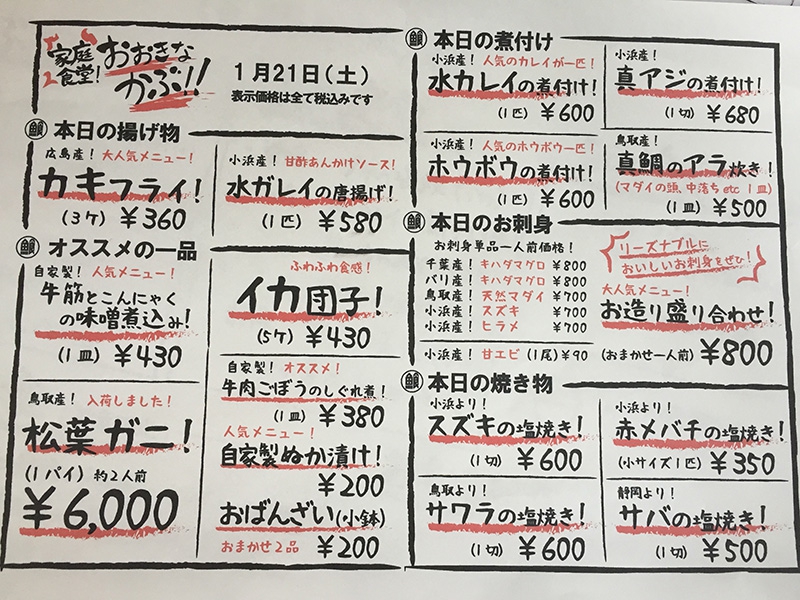 家庭食堂!
おおきな
かぶ!!
1月21日(土)
表示価格は全て税込みです
本日の揚げ物
広島産! 大人気メニュー!
カキフライ!
(3ケ) ¥360
小浜産! 甘酢あんかけソース!
水ガレイの唐揚げ!
(1匹) ¥580
オススメの一品
自家製! 人気メニュー!
牛筋とこんにゃく
の味噌煮込み!
(1皿) ¥430
鳥取産! 入荷しました!
松葉ガニ!
(1パイ) 約2人前
¥6,000
ふわふわ食感!
イカ団子!
(5ケ) ¥430
自家製! オススメ!
牛肉ごぼうのしぐれ煮!
(1皿) ¥380
人気メニュー!
自家製ぬか漬け!
¥200
おばんざい(小鉢)
おまかせ2品 ¥200
本日の煮付け
小浜産! 人気のカレイが一匹!
水カレイの煮付け!
(1匹) ¥600
小浜産!
真アジの煮付け!
(1切) ¥680
小浜産! 人気のホウボウ一匹!
ホウボウの煮付け!
(1匹) ¥600
鳥取産!
真鯛のアラ炊き!
(マダイの頭、中落ち etc 1皿)
(1皿) ¥500
本日のお刺身
お刺身単品一人前価格!
千葉産! キハダマグロ ¥800
バリ産! キハダマグロ ¥800
鳥取産! 天然マダイ ¥700
小浜産! スズキ ¥700
小浜産! ヒラメ ¥700
小浜産! 甘エビ (1尾) ¥90
リーズナブルに
おいしいお刺身をぜひ!
大人気メニュー!
お造り盛り合わせ!
(おまかせ一人前) ¥800
本日の焼き物
小浜より!
スズキの塩焼き!
(1切) ¥600
小浜より!
赤メバチの塩焼き!
(小サイズ1匹) ¥350
鳥取より!
サワラの塩焼き!
(1切) ¥600
静岡より!
サバの塩焼き!
(1切) ¥500